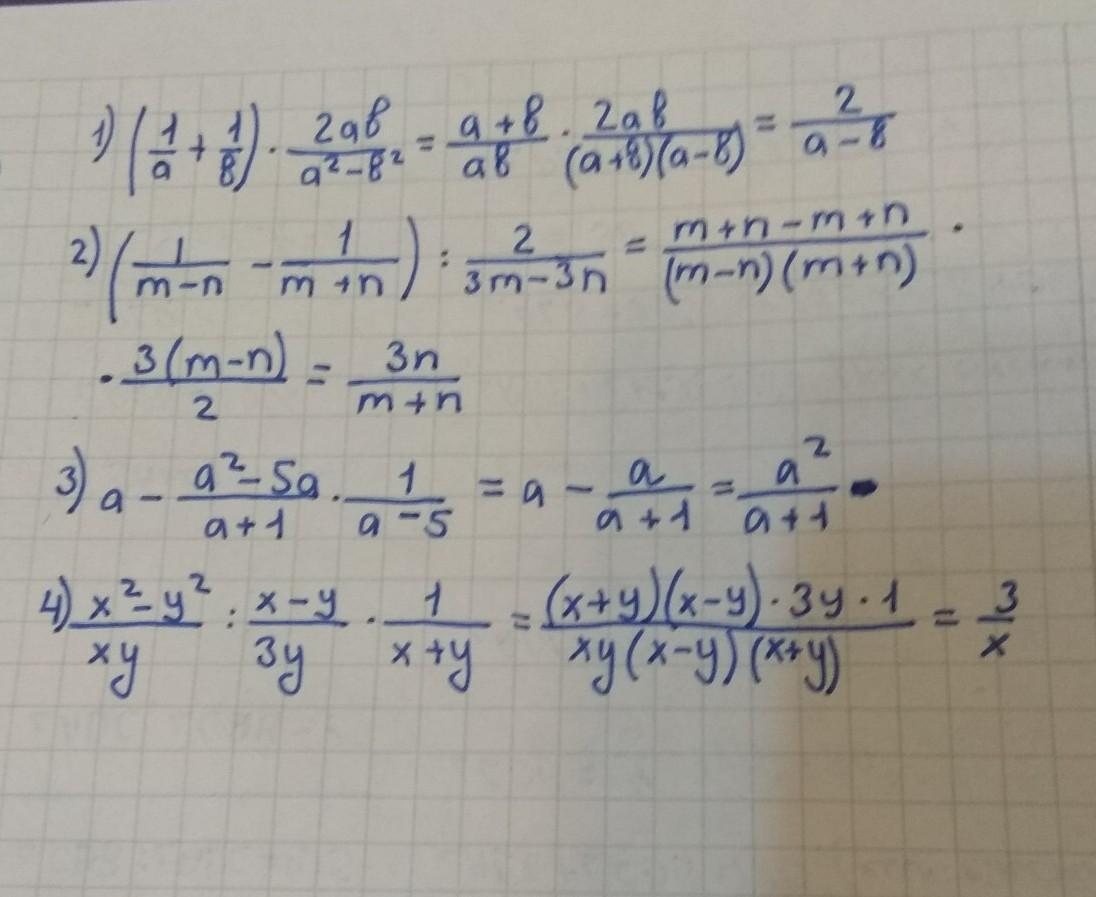 1) (1/a + 1/b) · 2ab/(a² - b²) = (a + b)/(ab) · 2ab/((a+b)(a-b)) = 2/(a - b)
2) (1/(m - n) - 1/(m + n)) : 2/(3m - 3n) = (m + n - m + n)/((m - n)(m + n)) ·
· 3(m - n)/2 = 3n/(m + n)
3) a - (a² - 5a)/(a + 1) · 1/(a - 5) = a - a/(a + 1) = a²/(a + 1)
4) (x² - y²)/(xy) : (x - y)/(3y) · 1/(x + y) = ((x + y)(x - y) · 3y · 1)/(xy(x - y)(x + y)) = 3/x